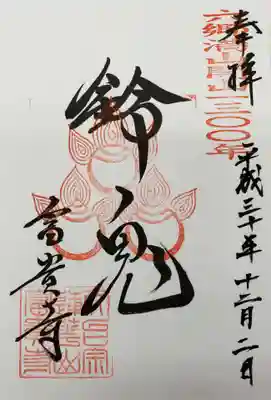 奉拝
六郷満山開山一三〇〇年
平成三十年十二月二日
鈴鬼
富貴寺